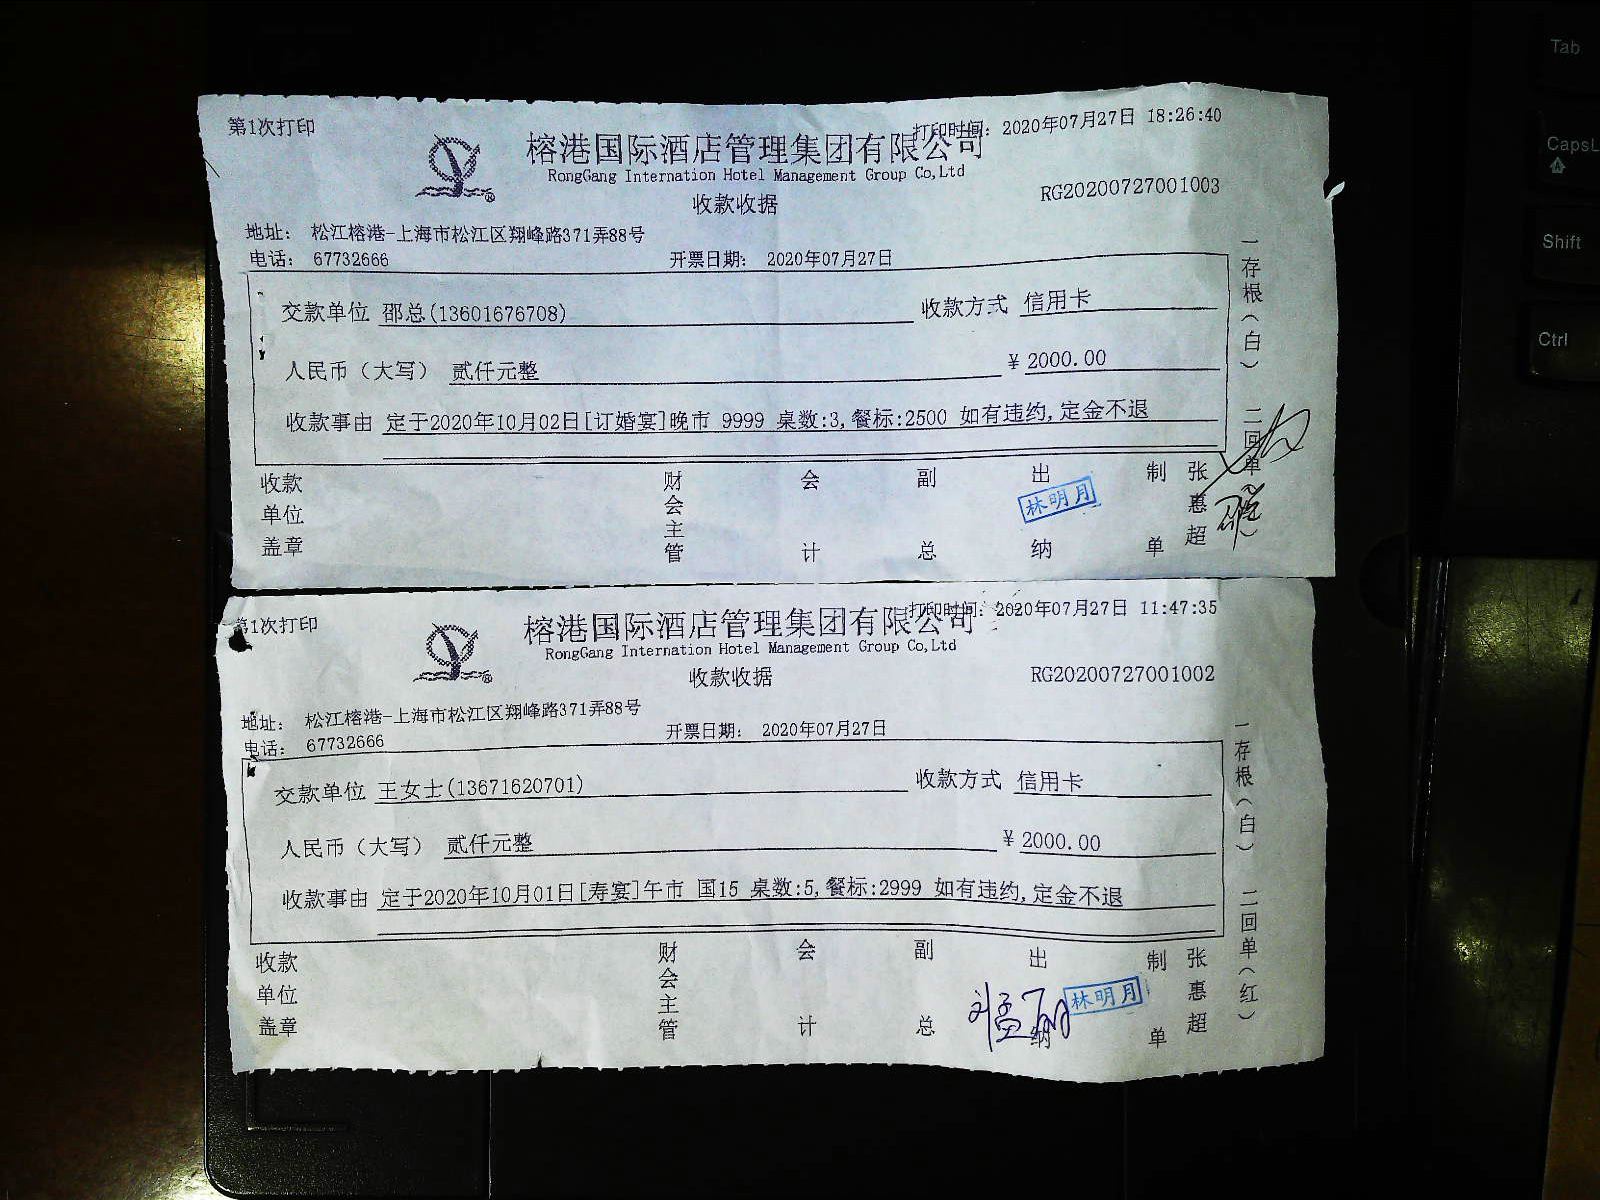 第1次打印
打印时间：2020年07月27日 18:26:40
榕港国际酒店管理集团有限公司
RongGang Internation Hotel Management Group Co,Ltd
收款收据
RG20200727001003
地址： 松江榕港-上海市松江区翔峰路371弄88号
电话： 67732666 开票日期： 2020年07月27日
交款单位 邵总(13601676708) 收款方式 信用卡
人民币（大写） 贰仟元整 ¥ 2000.00
收款事由 定于2020年10月02日[订婚宴]晚市 9999 桌数:3,餐标:2500 如有违约,定金不退
收款单位盖章 财会主管 会计 副总 出纳 林明月 制单 张惠超
一存根（白） 二回单
第1次打印
打印时间：2020年07月27日 11:47:35
榕港国际酒店管理集团有限公司
RongGang Internation Hotel Management Group Co,Ltd
收款收据
RG20200727001002
地址： 松江榕港-上海市松江区翔峰路371弄88号
电话： 67732666 开票日期： 2020年07月27日
交款单位 王女士(13671620701) 收款方式 信用卡
人民币（大写） 贰仟元整 ¥ 2000.00
收款事由 定于2020年10月01日[寿宴]午市 国15 桌数:5,餐标:2999 如有违约,定金不退
收款单位盖章 财会主管 会计 副总 出纳 林明月 制单 张惠超
一存根（白） 二回单（红）
Tab
CapsL
Shift
Ctrl